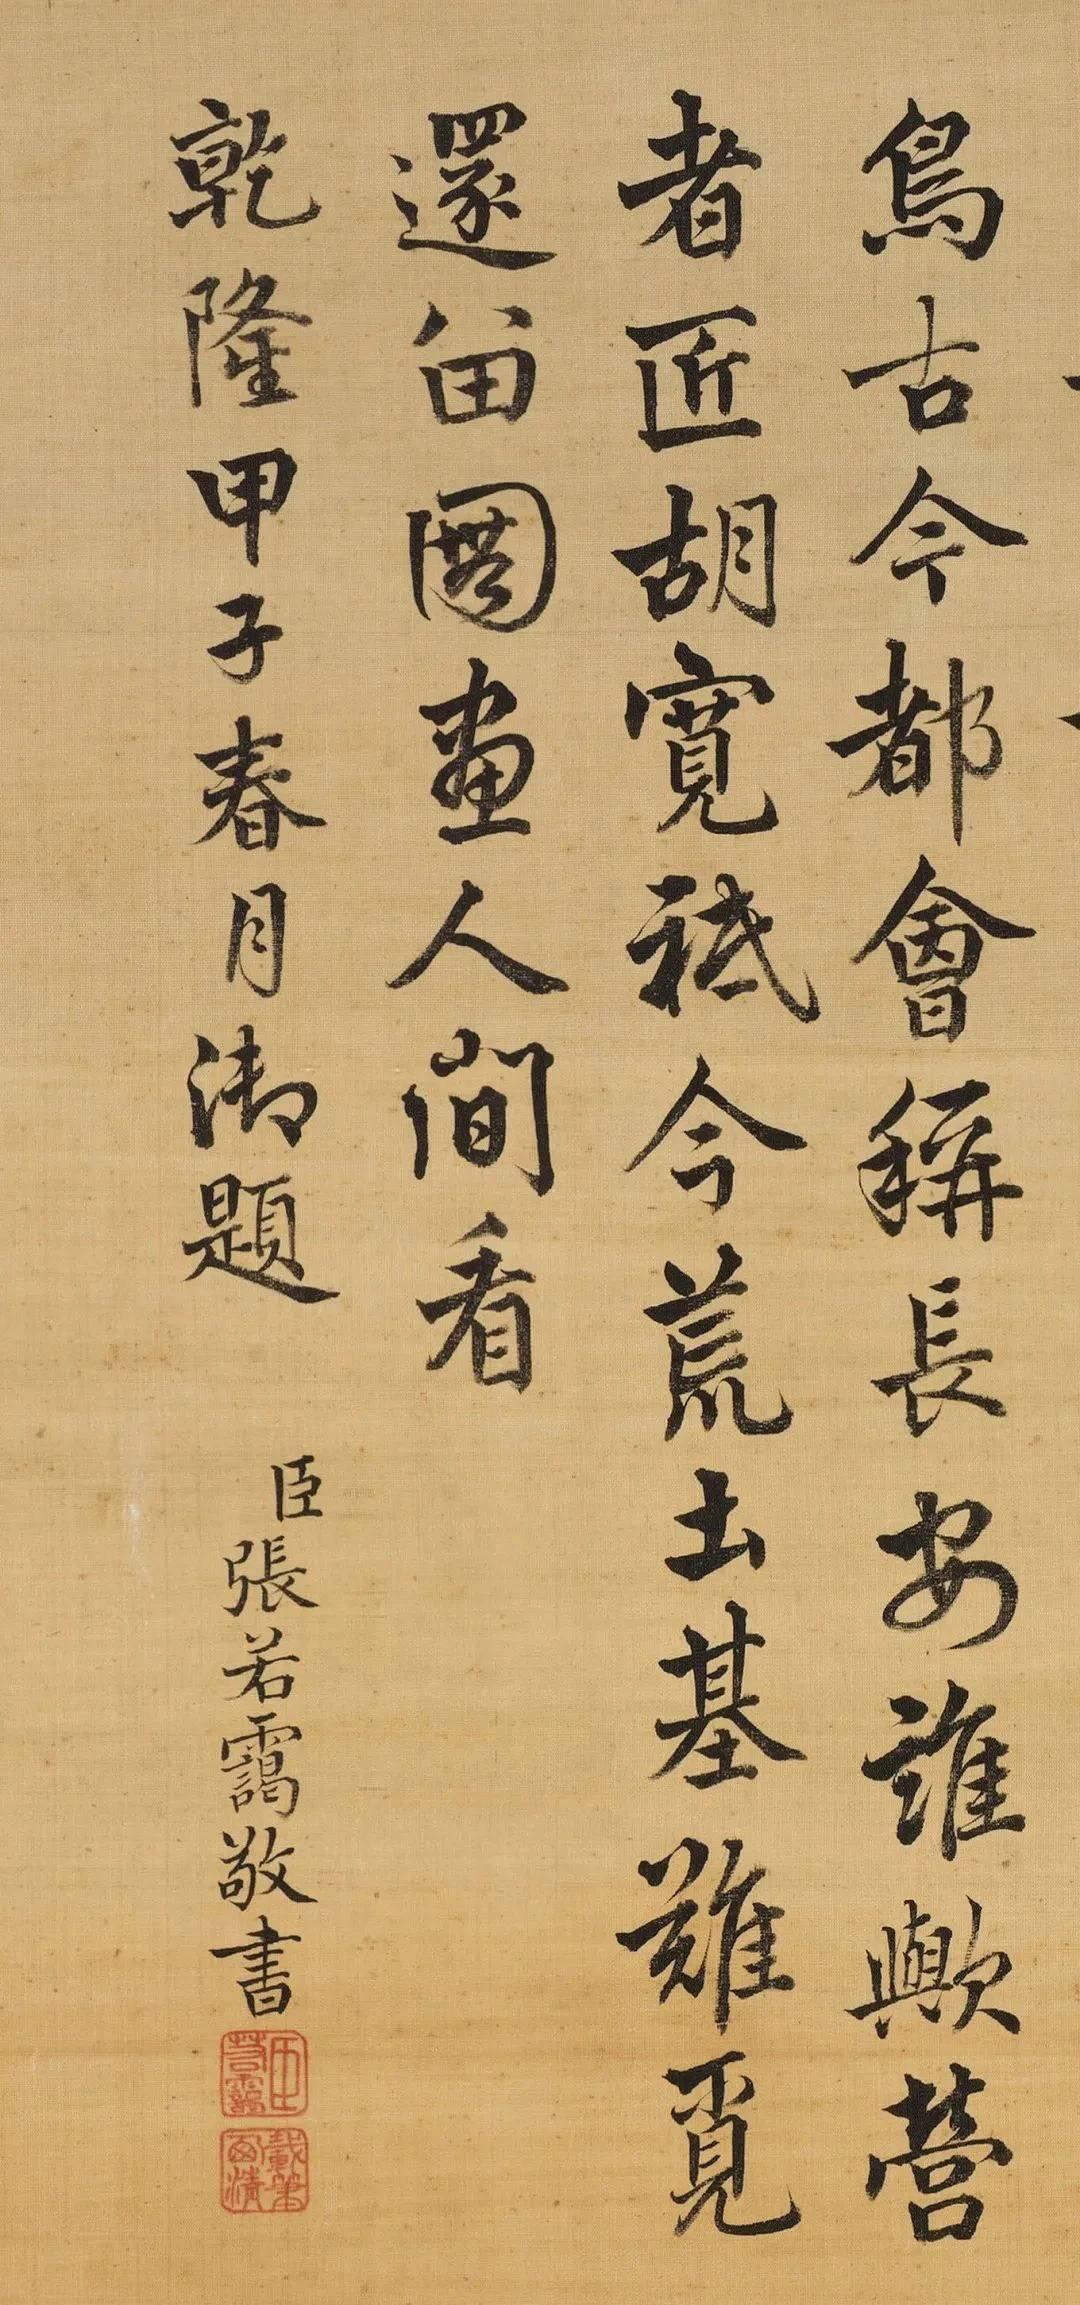 鳥古今都會稱長安誰歟營
者匠胡寬祗今荒土基難覓
還留圖畫人間看
乾隆甲子春月御題
臣張若靄敬書
臣若靄
載筆西清